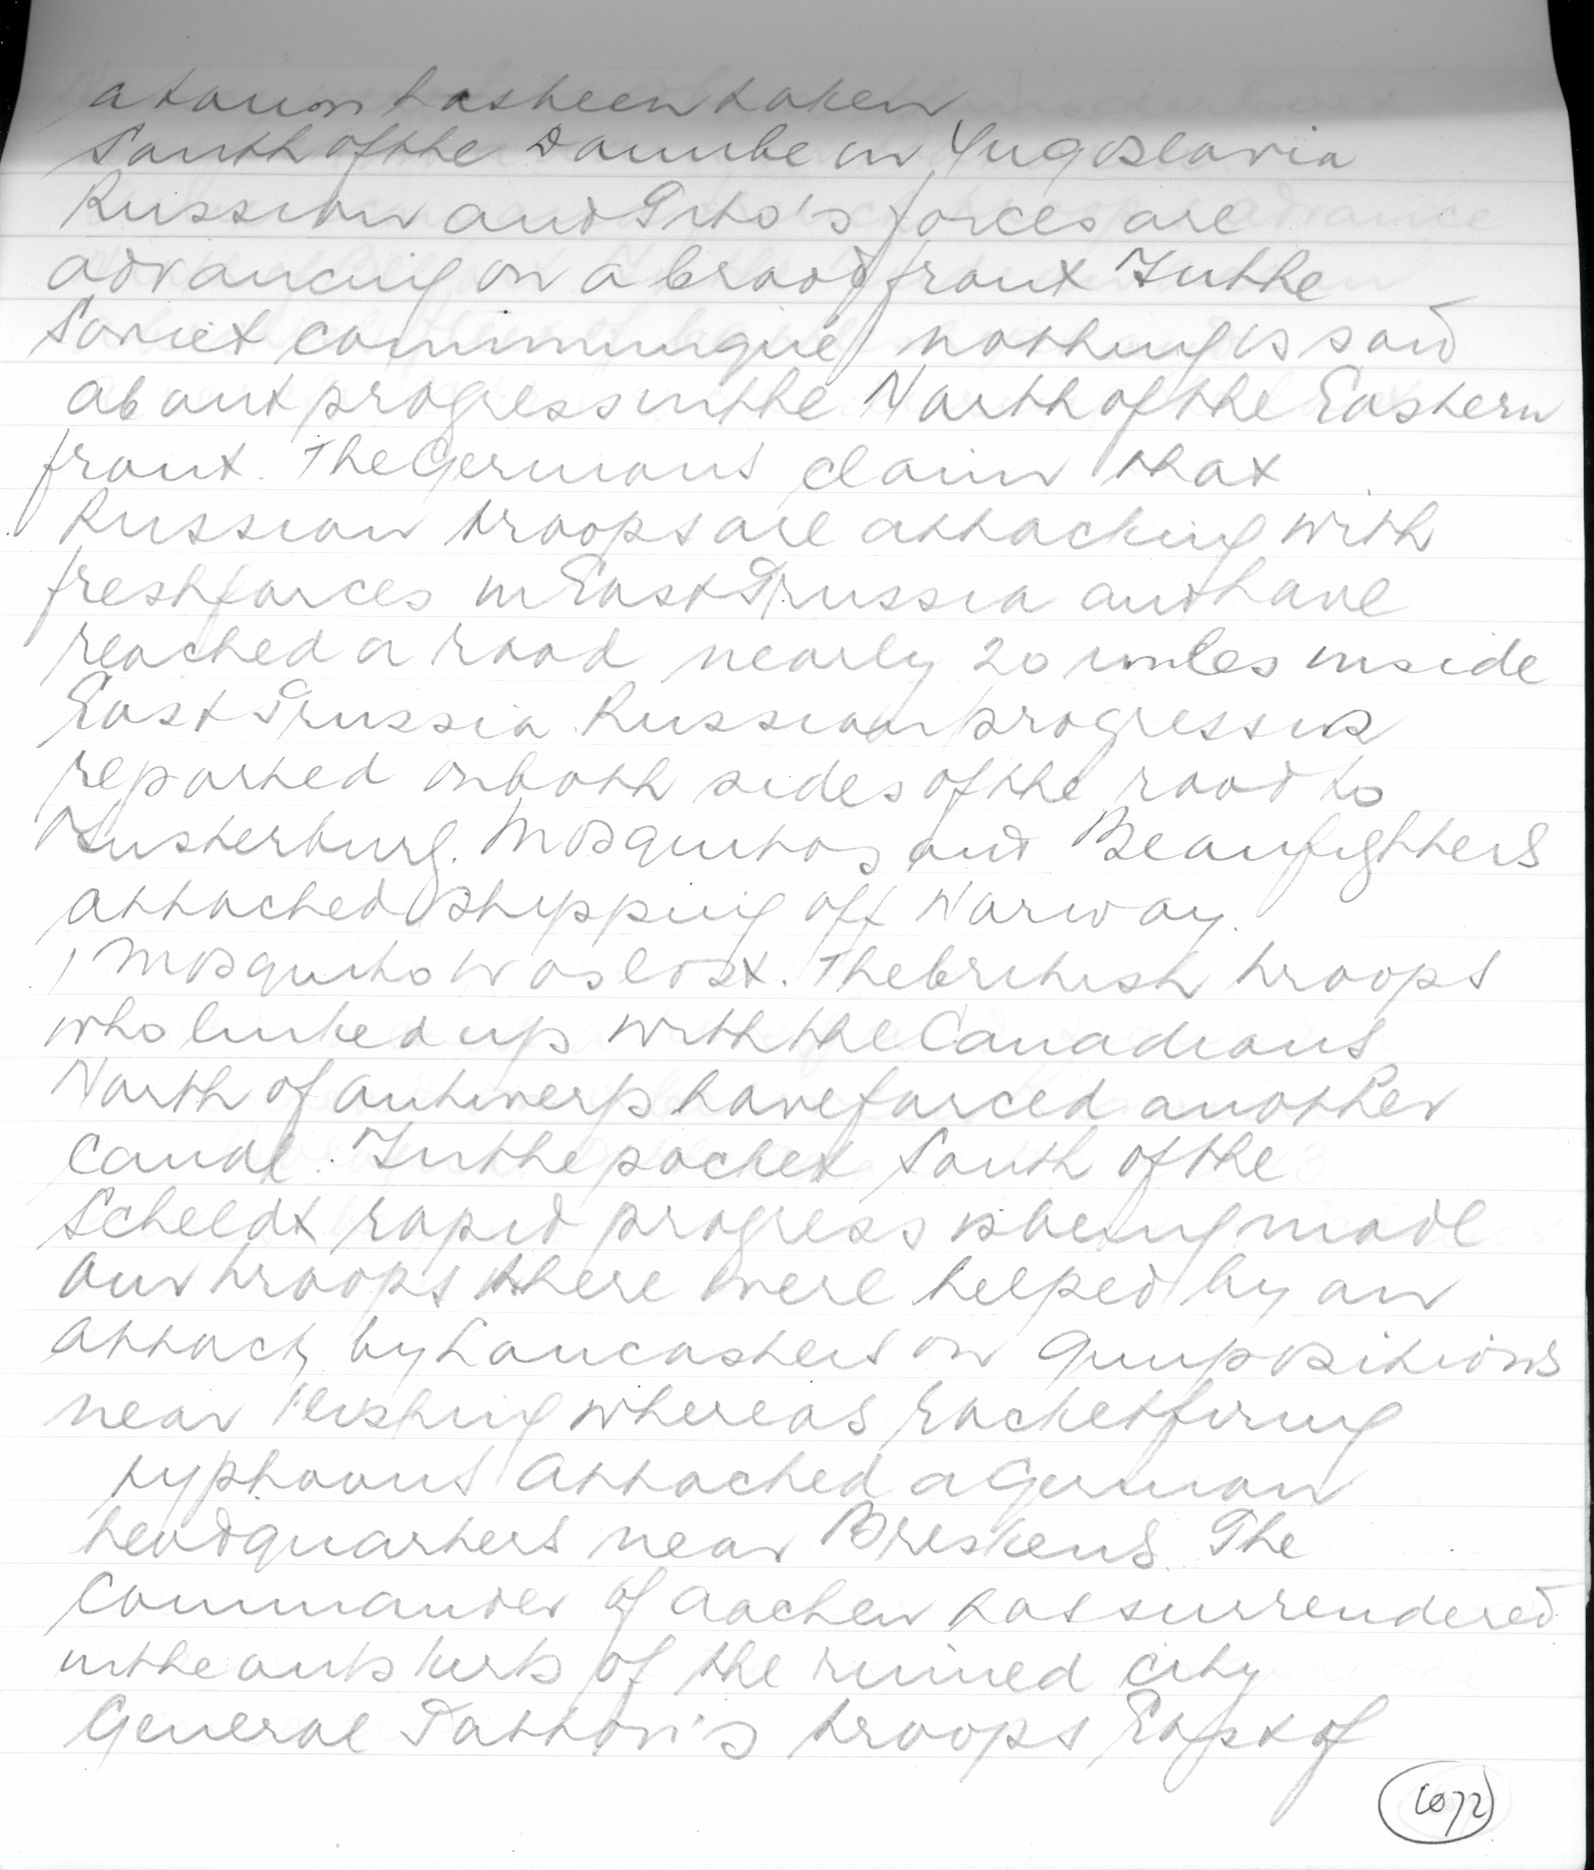 a town has been taken
South of the Danube in Yugoslavia
Russian and Tito's forces are
advancing on a broad front In the
Soviet communiqué nothing is said
about progress in the North of the Eastern
front. The Germans claim that
Russian troops are attacking with
fresh forces in East Prussia and have
reached a road nearly 20 miles inside
East Prussia. Russian progress is
reported on both sides of the road to
Insterburg. Mosquitos and Beaufighters
attacked shipping off Norway.
1 Mosquito was lost. The british troops
who linked up with the Canadians
North of Antwerp have forced another
canal. In the pocket South of the
Scheldt rapid progress is being made
Our troops there were helped by an
attack by Lancasters on gunpositions
near Flushing whereas rocketfiring
typhoons attacked a German
headquarters near Breskens. The
Commander of Aachen has surrendered
in the outskirts of the ruined city
General Patton's troops East of
1072